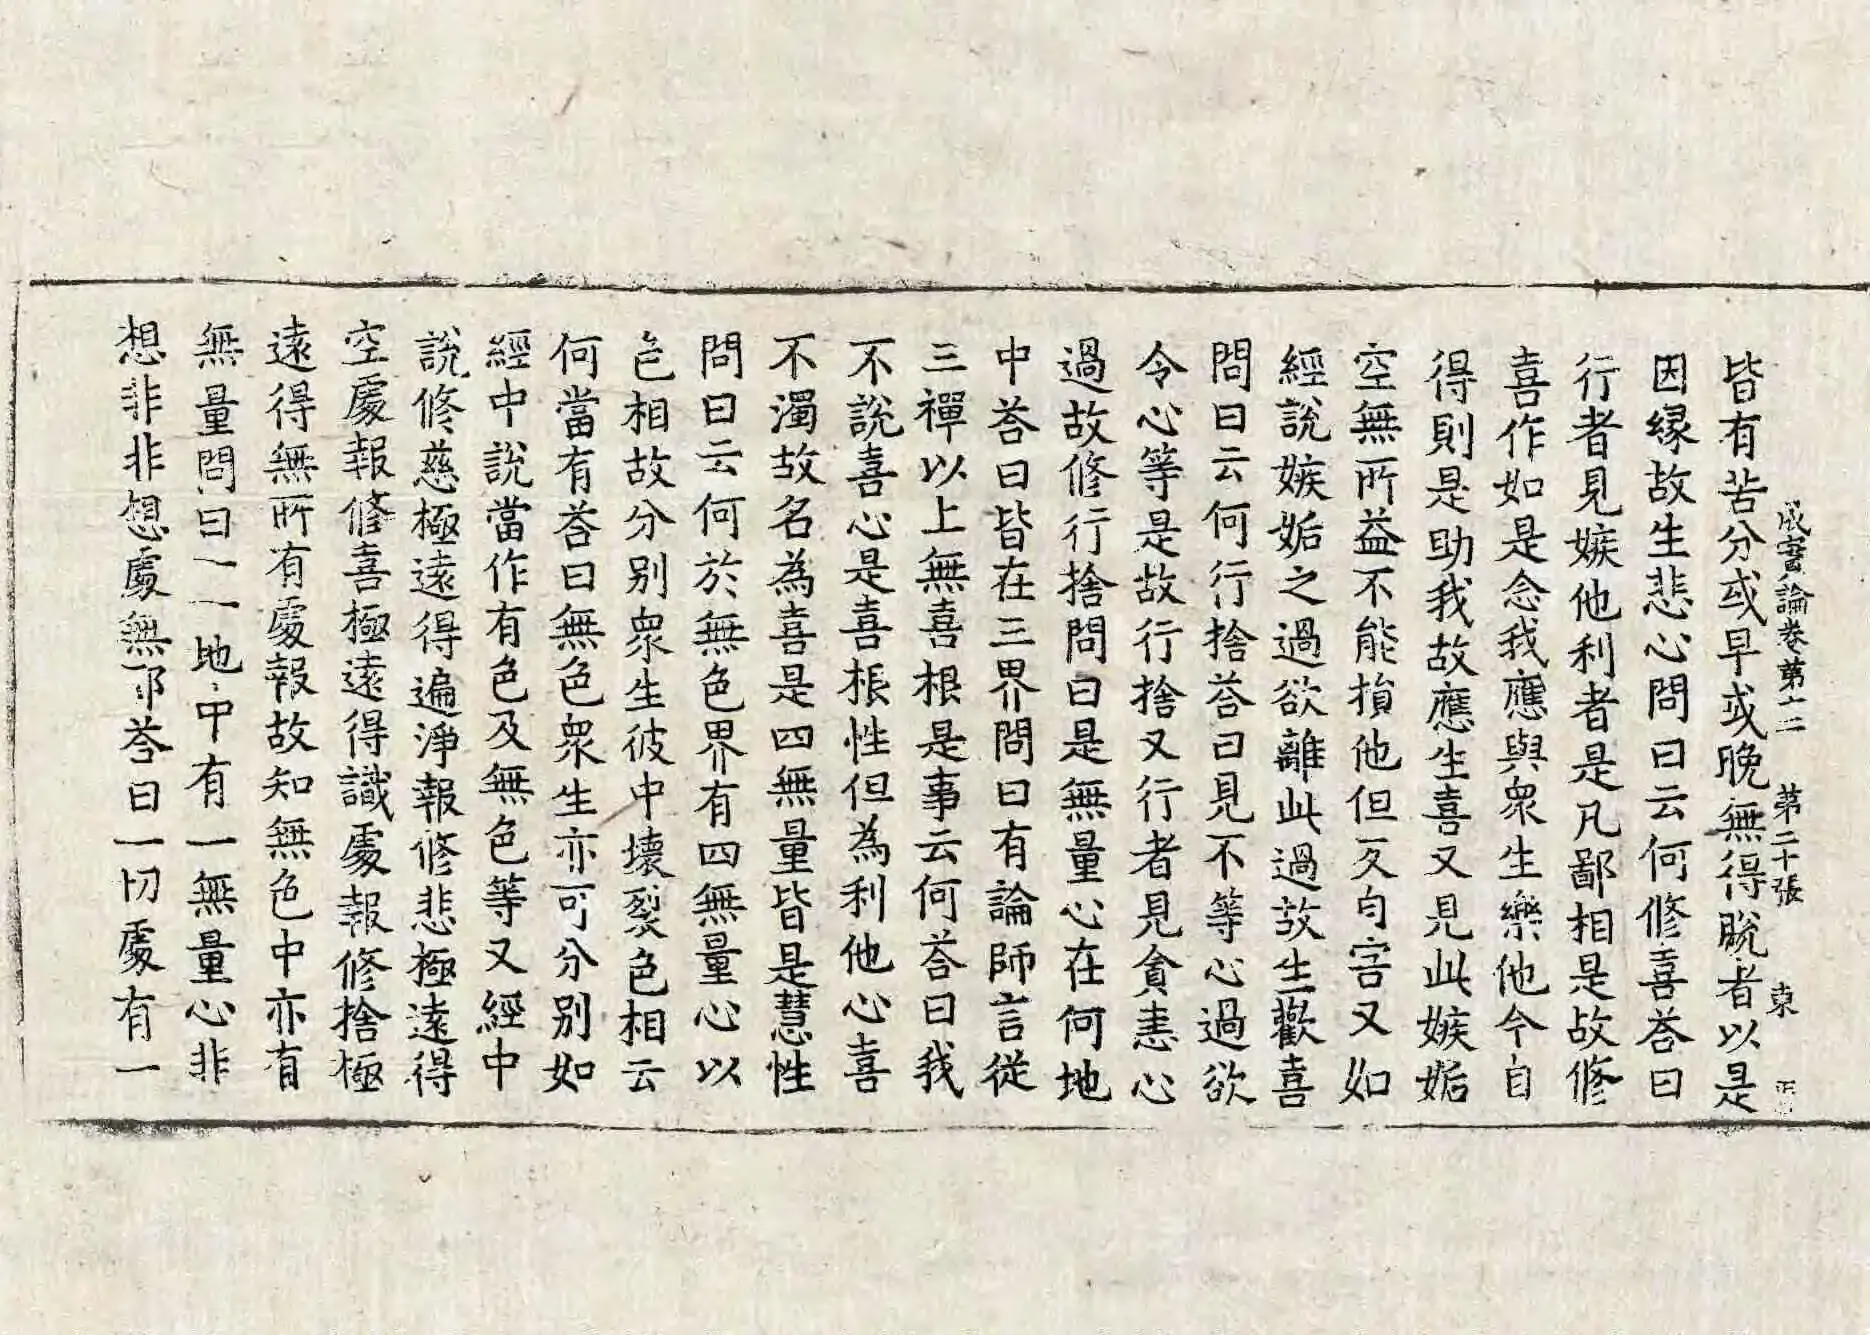 成實論卷第十二　第二十張　東
皆有苦分或早或晚無得脫者以是
因緣故生悲心問曰云何修喜荅曰
行者見嫉他利者是凡鄙相是故修
喜作如是念我應與衆生樂他今自
得則是助我故應生喜又見此嫉妬
空無所益不能損他但反自害又如
經說嫉妬之過欲離此過故生歡喜
問曰云何行捨荅曰見不等心過欲
令心等是故行捨又行者見貪恚心
過故修行捨問曰是無量心在何地
中荅曰皆在三界問曰有論師言從
三禪以上無喜根是事云何荅曰我
不說喜心是喜根性但為利他心喜
不濁故名為喜是四無量皆是慧性
問曰云何於無色界有四無量心以
色相故分別衆生彼中壞裂色相云
何當有荅曰無色衆生亦可分別如
經中說當作有色及無色等又經中
說修慈極遠得遍淨報修悲極遠得
空處報修喜極遠得識處報修捨極
遠得無所有處報故知無色中亦有
無量問曰一一地中有一無量心非
想非非想處無耶荅曰一切處有一